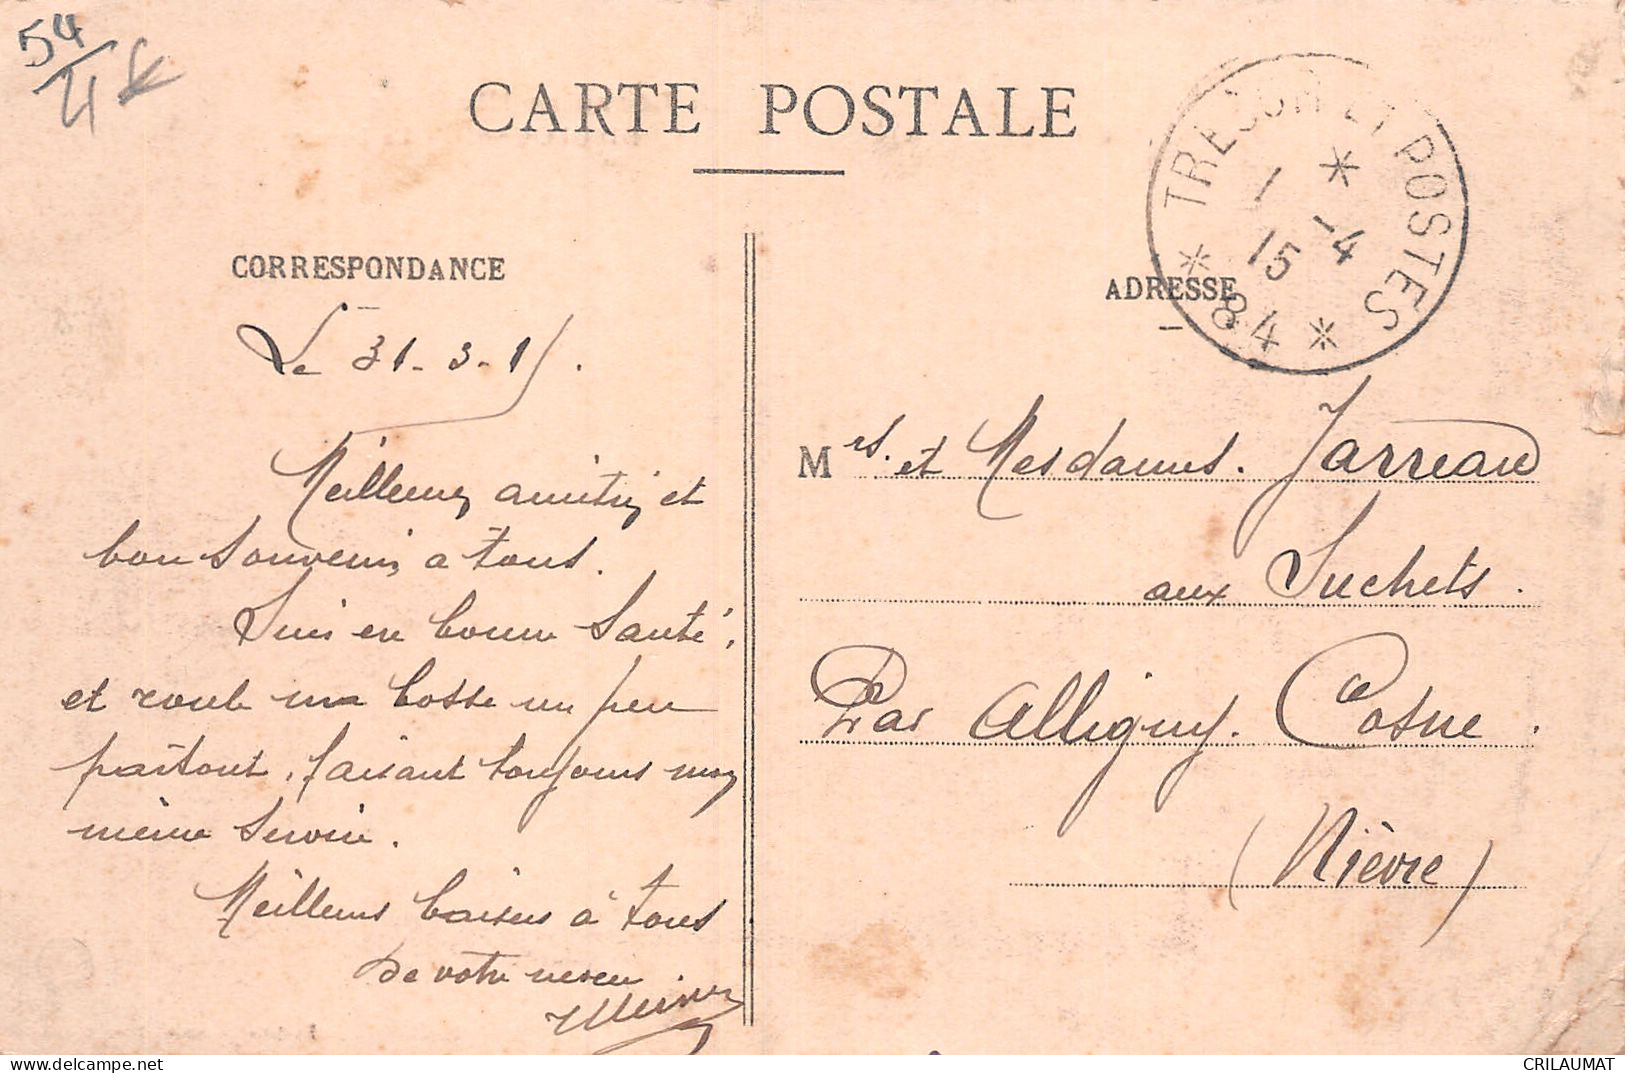 54
4
CARTE POSTALE
TRESOR ET POSTES
* 1 -4 15 *
* 84 *
CORRESPONDANCE
Le 31-3-15.
Meilleures amitiés et
bon souvenir à tous.
Suis en bonne santé,
et roule ma bosse un peu
partout, faisant toujours mon
même service.
Meilleurs baisers à tous
de votre neveu
ADRESSE
Mrs. et Mesdames. Jarreau
aux Suchets.
Par Alligny. Cosne.
(Nièvre)
CRILAUMAT